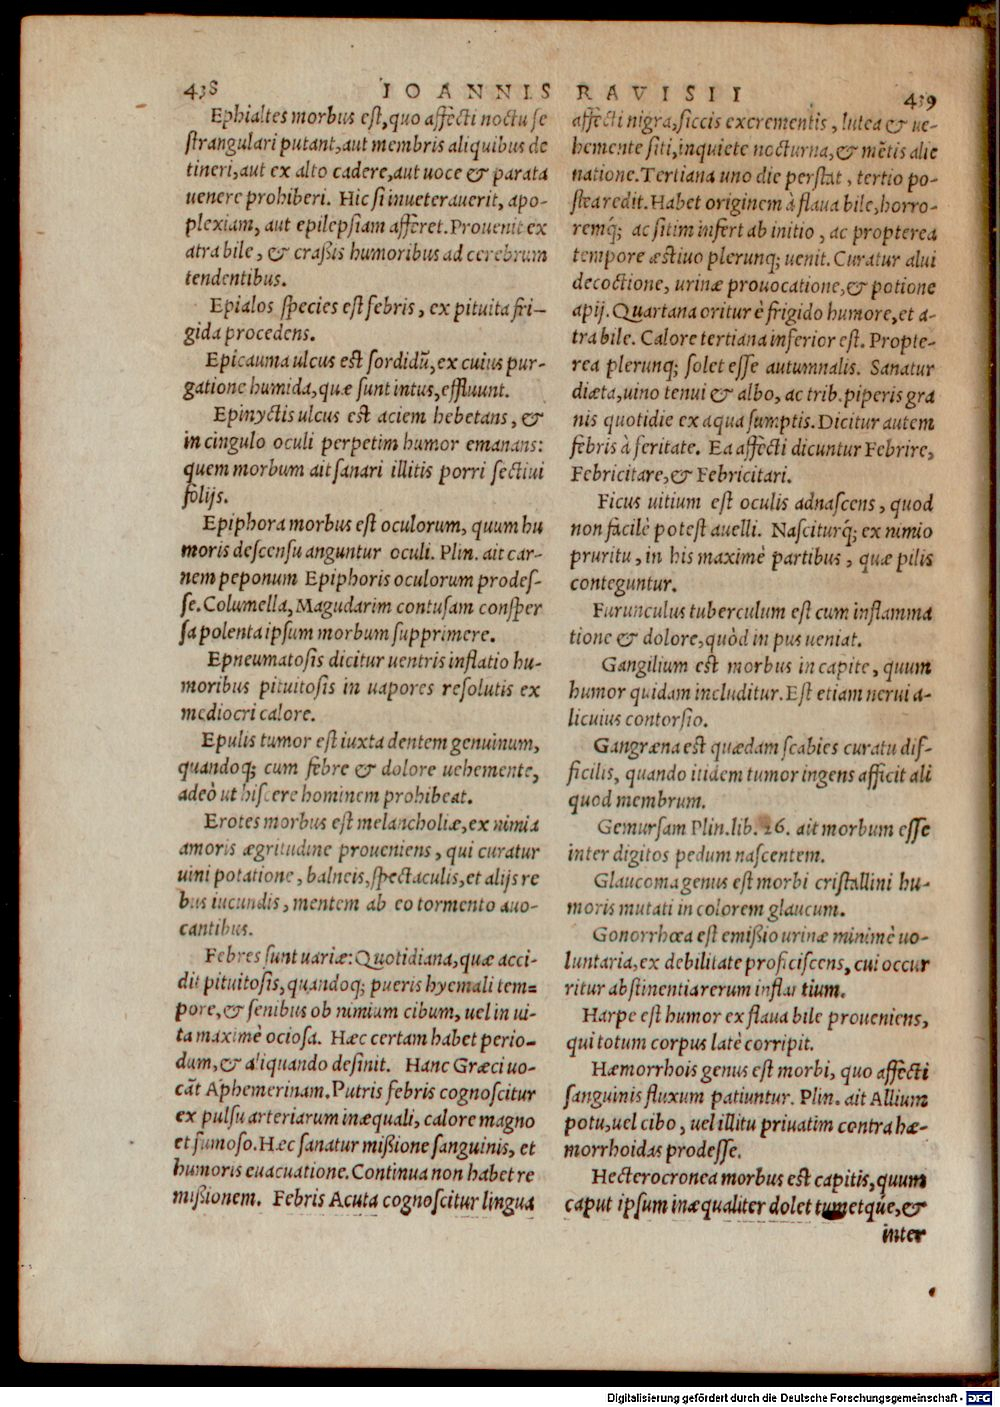 438 IOANNIS RAVISII 439
Ephialtes morbus est, quo affecti noctu se
strangulari putant, aut membris aliquibus de
tineri, aut ex alto cadere, aut uoce & parata
uenere prohiberi. Hic si inueterauerit, apo-
plexiam, aut epilepsiam afferet. Prouenit ex
atra bile, & crassis humoribus ad cerebrum
tendentibus.
Epialos species est febris, ex pituita fri-
gida procedens.
Epicauma ulcus est sordidũ, ex cuius pur-
gatione humida, quæ sunt intus, effluunt.
Epinyctis ulcus est aciem hebetans, &
in cingulo oculi perpetim humor emanans:
quem morbum ait sanari illitis porri sectiui
folijs.
Epiphora morbus est oculorum, quum hu
moris descensu anguntur oculi. Plin. ait car-
nem peponum Epiphoris oculorum prodes-
se. Columella, Magudarim contusam consper
sa polenta ipsum morbum supprimere.
Epneumatosis dicitur uentris inflatio hu-
moribus pituitosis in uapores resolutis ex
mediocri calore.
Epulis tumor est iuxta dentem genuinum,
quandoq; cum febre & dolore uehemente,
adeò ut hiscere hominem prohibeat.
Erotes morbus est melancholiæ, ex nimia
amoris ægritudine proueniens, qui curatur
uini potatione, balneis, spectaculis, et alijs re
bus iucundis, mentem ab eo tormento auo-
cantibus.
Febres sunt uariæ: Quotidiana, quæ acci-
dit pituitosis, quandoq; pueris hyemali tem=
pore, & senibus ob nimium cibum, uel in ui-
ta maximè ociosa. Hæc certam habet perio-
dum, & aliquando desinit. Hanc Græci uo-
cãt Aphemerinam. Putris febris cognoscitur
ex pulsu arteriarum inæquali, calore magno
et fumoso. Hæc sanatur missione sanguinis, et
humoris euacuatione. Continua non habet re
missionem. Febris Acuta cognoscitur lingua
affecti nigra, siccis excrementis, lutea & ue-
hemente siti, inquiete nocturna, & mẽtis alie
natione. Tertiana uno die perstat, tertio po-
stea redit. Habet originem à flaua bile, horro-
remq́; ac sitim infert ab initio, ac propterea
tempore æstiuo plerunq; uenit. Curatur alui
decoctione, urinæ prouocatione, & potione
apij. Quartana oritur è frigido humore, et a-
tra bile. Calore tertiana inferior est. Propte-
rea plerunq; solet esse autumnalis. Sanatur
diæta, uino tenui & albo, ac trib. piperis gra
nis quotidie ex aqua sumptis. Dicitur autem
febris à feritate. Ea affecti dicuntur Febrire,
Febricitare, & Febricitari.
Ficus uitium est oculis adnascens, quod
non facilè potest auelli. Nasciturq́; ex nimio
pruritu, in his maximè partibus, quæ pilis
conteguntur.
Furunculus tuberculum est cum inflamma
tione & dolore, quòd in pus ueniat.
Gangilium est morbus in capite, quum
humor quidam includitur. Est etiam nerui a-
licuius contorsio.
Gangræna est quædam scabies curatu dif-
ficilis, quando itidem tumor ingens afficit ali
quod membrum.
Gemursam Plin. lib. 26. ait morbum esse
inter digitos pedum nascentem.
Glaucoma genus est morbi cristallini hu-
moris mutati in colorem glaucum.
Gonorrhœa est emissio urinæ minimè uo-
luntaria, ex debilitate proficiscens, cui occur
ritur abstinentia rerum inflantium.
Harpe est humor ex flaua bile proueniens,
qui totum corpus latè corripit.
Hæmorrhois genus est morbi, quo affecti
sanguinis fluxum patiuntur. Plin. ait Allium
potu, uel cibo, uel illitu priuatim contra hæ-
morrhoidas prodesse.
Hecterocronea morbus est capitis, quum
caput ipsum inæqualiter dolet tumetq́ue, &
inter
Digitalisierung gefördert durch die Deutsche Forschungsgemeinschaft - DFG